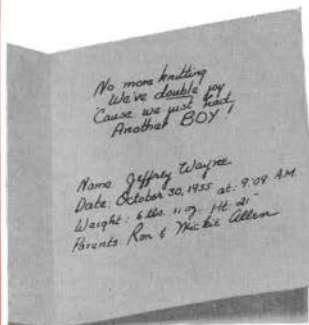 No more knitting
We've double joy
'Cause we just had
Another BOY!
Name: Jeffrey Wayne
Date: October 30, 1955 at: 9:09 A.M.
Weight: 6 lbs. 11 oz. Ht. 21"
Parents: Ron & Allen